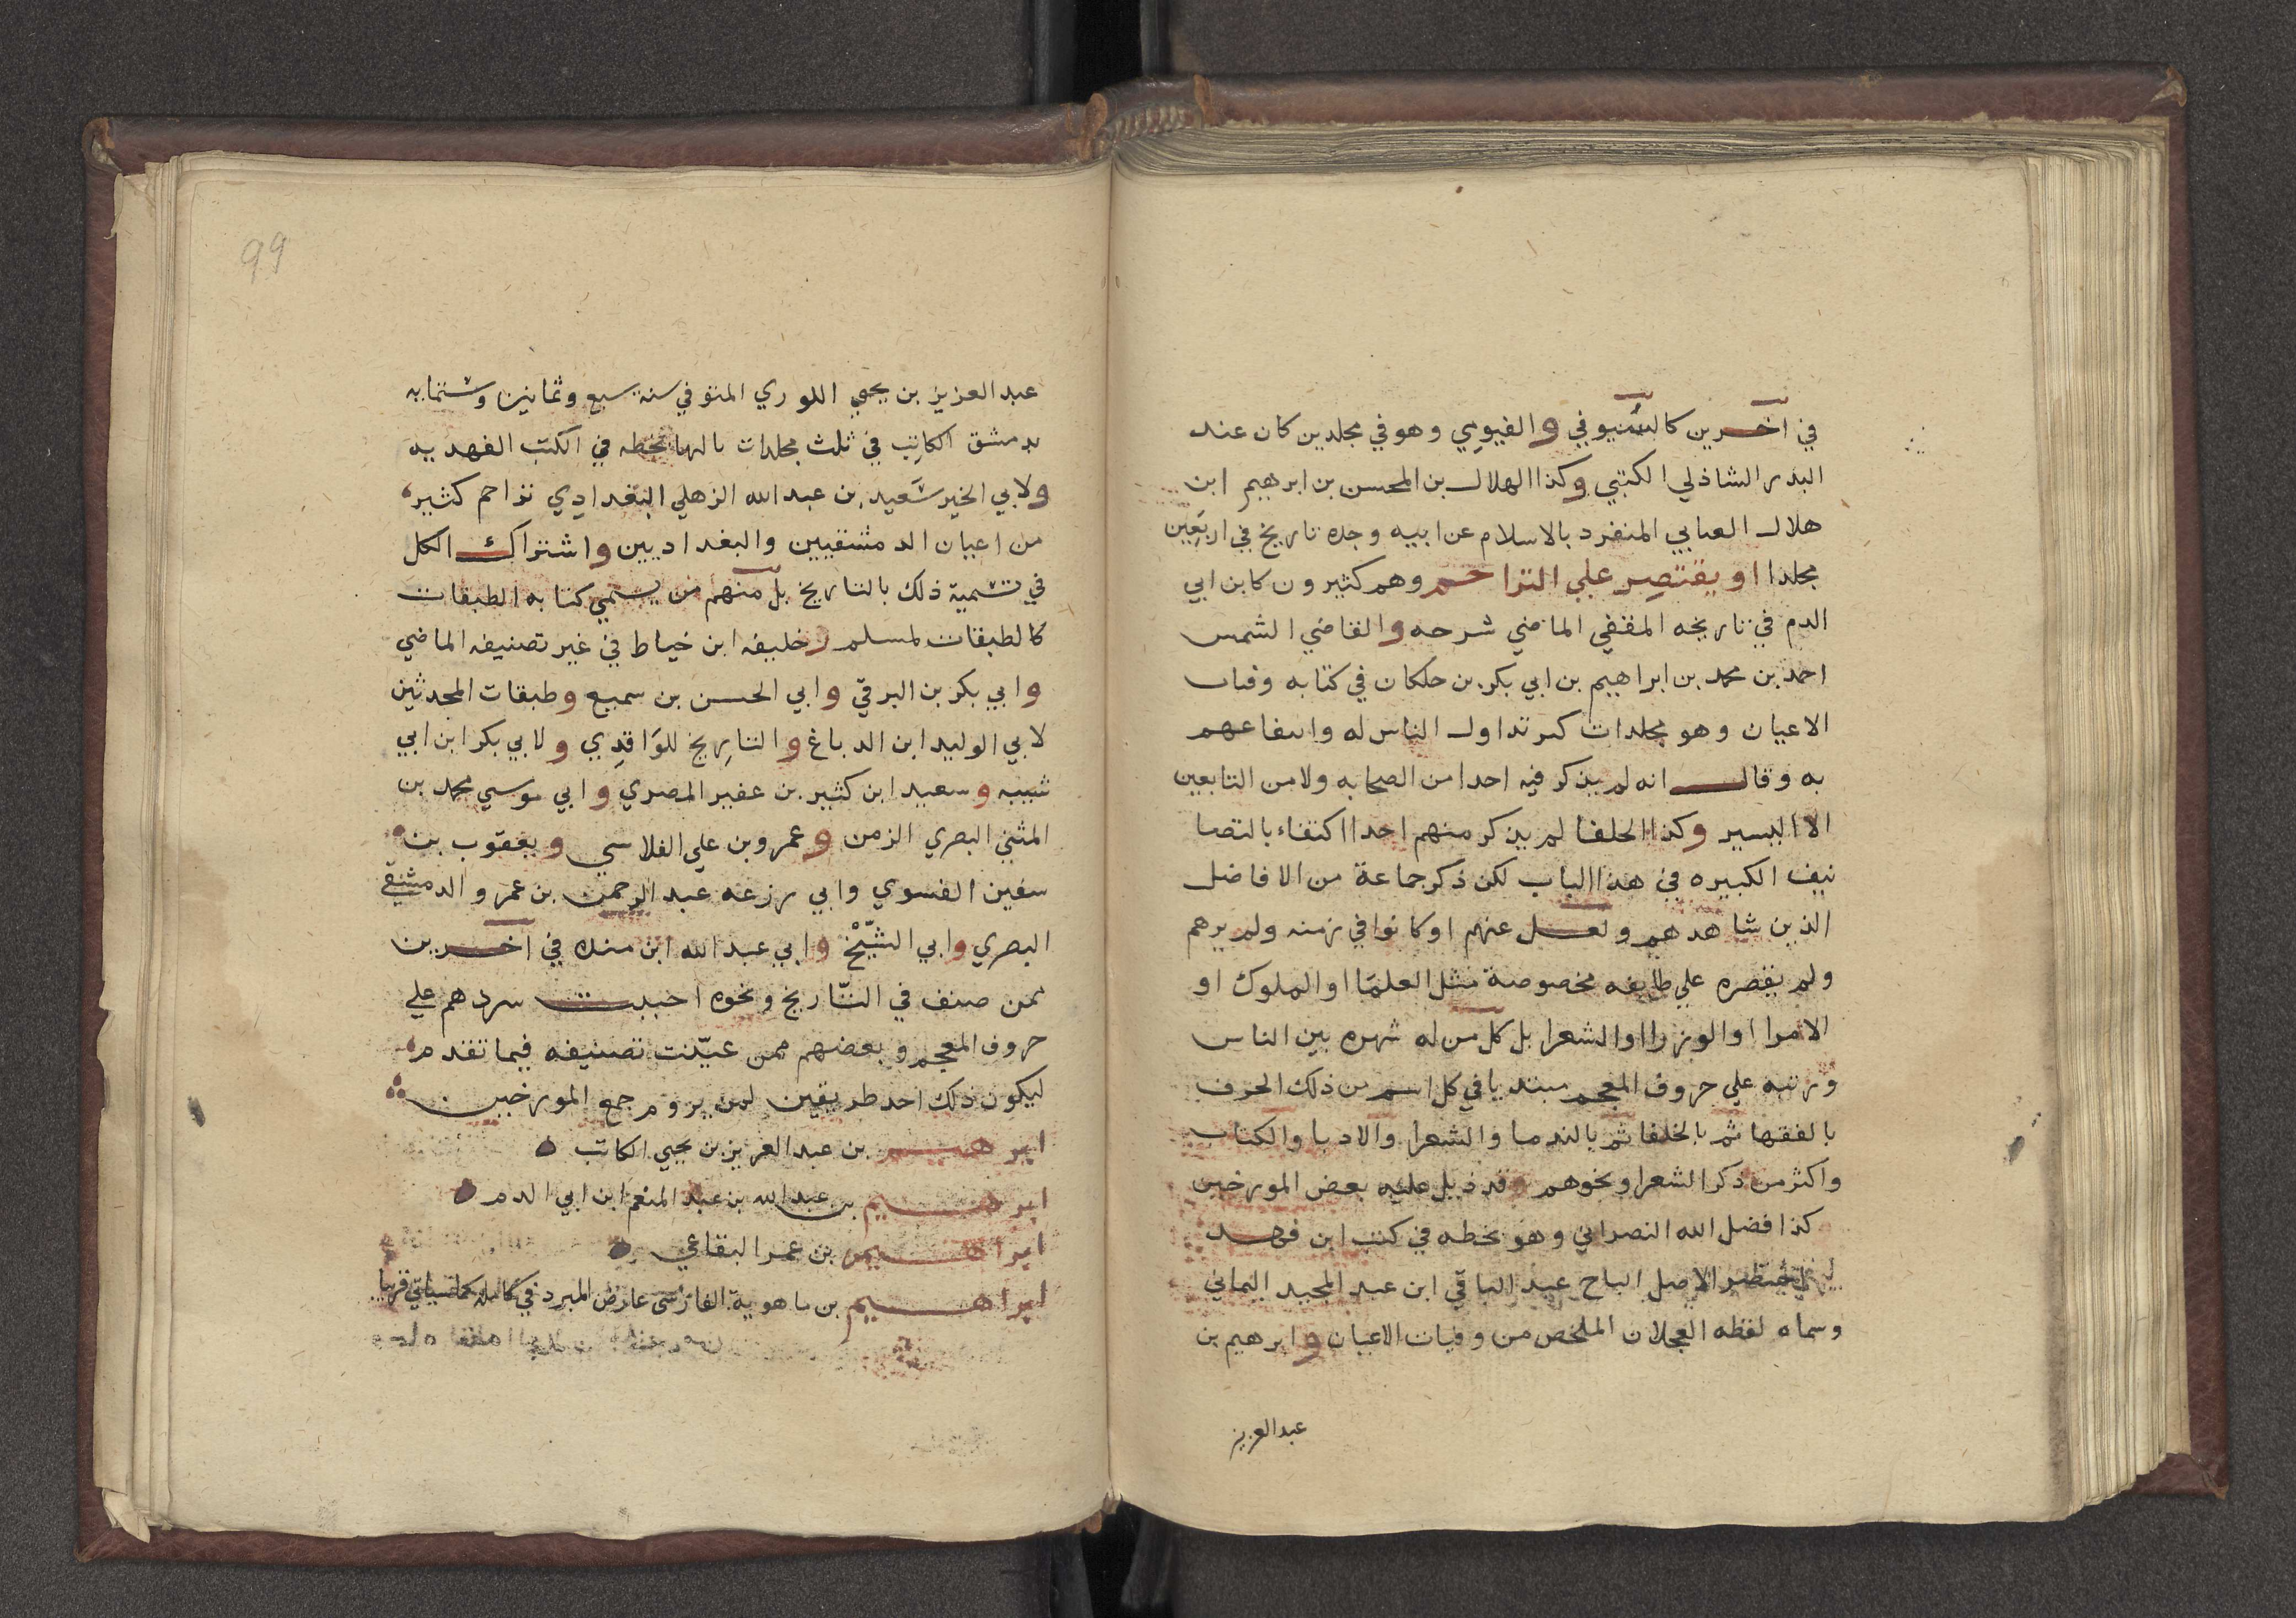 في اخرين كالسيوفي والفيومي وهو في مجلدين كان عند
البدر الشاذلي الكتبي وكذا الهلال بن المحسن بن ابرهيم ابن
هلال الصابي المنفرد بالاسلام عن ابيه وجده تاريخ في اربَعِين
مجلدا او يقتصِر علي التراجم وهم كثيرون كابن ابي
الدم في تاريخه المقفي الماضي شرحه والقاضي الشمس
احمد بن محمد بن ابراهيم بن ابي بكر بن خلكان في كتابه وفيات
الاعيان وهو مجلدات كثر تداول الناس له وانتفاعهم
به وقال انه لم يذكر فيه احدا من الصحابه ولا من التابعين
الا اليسير وكذا الخلفا لم يذكر منهم احدا اكتفاء بالتصا
نيف الكبيره في هذا الباب لكن ذكر جماعة من الافاضل
الذين شاهدهم ونقل عنهم او كانوا في زمنه ولم يرهم
ولم يقصره علي طايفه مخصوصة مثل العلمَا او الملوك او
الامرا او الوزرا او الشعرا بل كل من له شهره بين الناس
ورتبه علي حروف المعجم مبتديا في كل اسم من ذلك الحرف
بالفقها ثم بالخلفا ثم بالندما والشعرا والادبا والكتاب
واكثر من ذكر الشعرا ونحوهم وقد ذيل عليه بعض المورخين
كذا فضل الله النصراني وهو بخطه في كتب ابن فهد
الاصل التاج عبد الباقي ابن عبد المجيد اليماني
وسماه لقطه العجلان الملخص من وفيات الاعيان وابرهيم بن
عبد العزيز
99
عبد العزيز بن يحيي اللوري المتوفي سنة سبع وثمانين وستمايه
بدمشق الكاتِب في ثلث مجلدات بالها بخطه في الكتب الفهديه
ولابي الخير سَعيد بن عبد الله الذهلي البغدادِي تراجم كثير
من اعيان الدمشقيين والبغداديين واشتراك الكل
في تسمية ذلك بالتاريخ بل منهم من يسمي كتابه الطبقات
كالطبقات لمسلم وخليفه ابن خياط في غير تصنيفه الماضي
وابي بكر بن البرقي وابي الحسن بن سميع وطبقات المحدثين
لابي الوليد ابن الدباغ والتارِيخ للوَاقدِي ولابي بكر ابن ابي
شيبه وسعيد ابن كثير بن عفير المصري وابي موسي محمد بن
المثني البصري الزمن وعمرو بن علي الفلاسي ويعقوب بن
سفين الفسوي وابي زرعه عبد الرحمن بن عمرو الدمشقي
البصري وابي الشيْخ وابي عبد الله ابن منده في اخرين
ممن صنف في التّاريخ ونحوه احببت سردهم علي
حروف المعجم وبعضهم ممن عيّنت تصنيفه فيما تقدم
ليكون ذلك احد طريقين لمن يروم جمع المورخين
ابرهيم بن عبد العزيز بن يحيي الكاتب
ابرهيم بن عبد الله بن عبد المنعم ابن ابي الدم
ابراهيم بن عمر البقاعي
ابراهيم بن ماهوية الفارسي عارض المبرد في كامله كما سياتي قريبا